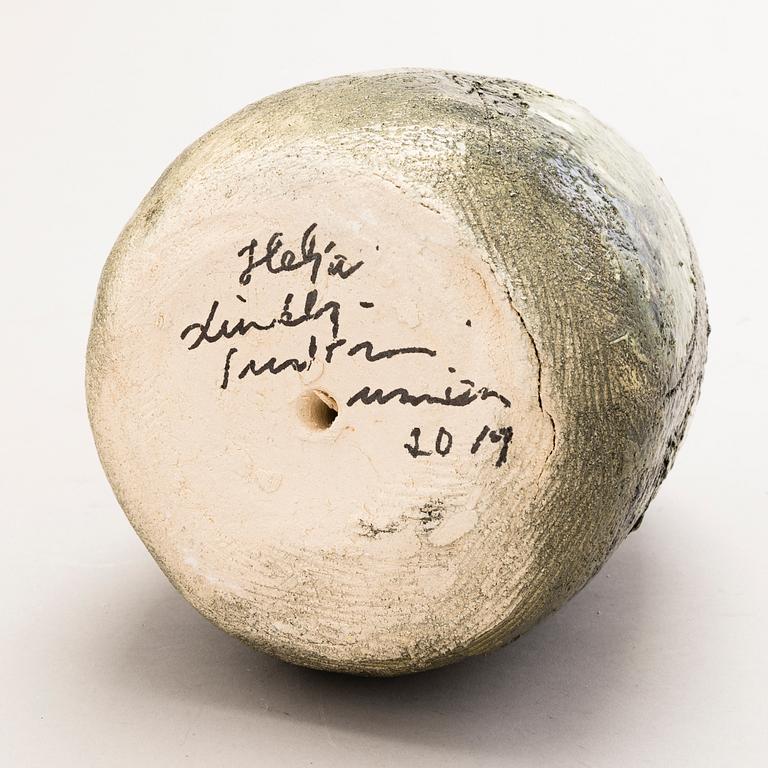 Heljä
Liukko-
Sundström
2019